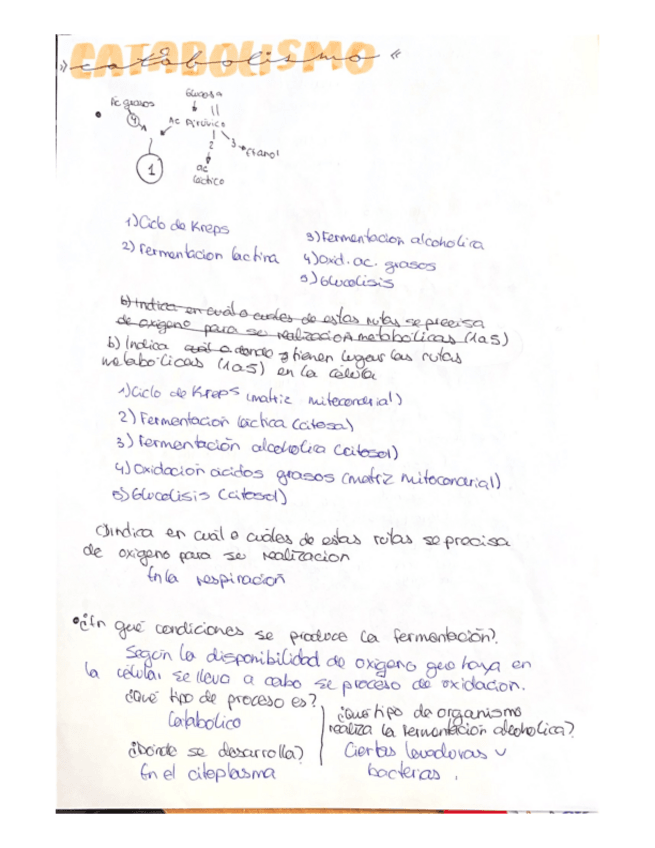 CATABOLISMO
» catabolismo «
Glucosa
Ac grasos
4
Ac Pirúvico
1
2
3
Etanol
ac
láctico
1) Ciclo de Kreps
3) Fermentacion alcoholica
2) Fermentacion lactina
4) Oxid. ac. grasos
5) Glucolisis
b) Indica en cuál o cuáles de estas rutas se precisa
de oxigeno para se realizacion metabólicas (1a5)
b) Indica cuál o donde tienen lugar las rutas
metabólicas (1a5) en la célula
1) Ciclo de Kreps (matriz mitocondrial)
2) Fermentacion láctica (citosol)
3) Fermentación alcoholica (citosol)
4) Oxidación ácidos grasos (matriz mitocondrial)
5) Glucolisis (citosol)
c) Indica en cuál o cuáles de estas rutas se precisa
de oxigeno para se realizacion
En la respiración
• ¿En qué condiciones se produce la fermentación?
Según la disponibilidad de oxigeno que haya en
la célula, se lleva a cabo se proceso de oxidacion.
¿Qué tipo de proceso es?
Catabolico
¿Dónde se desarrolla?
En el citoplasma
¿Qué tipo de organismo
realiza la fermentación alcoholica?
Ciertas levaduras y
bacterias.